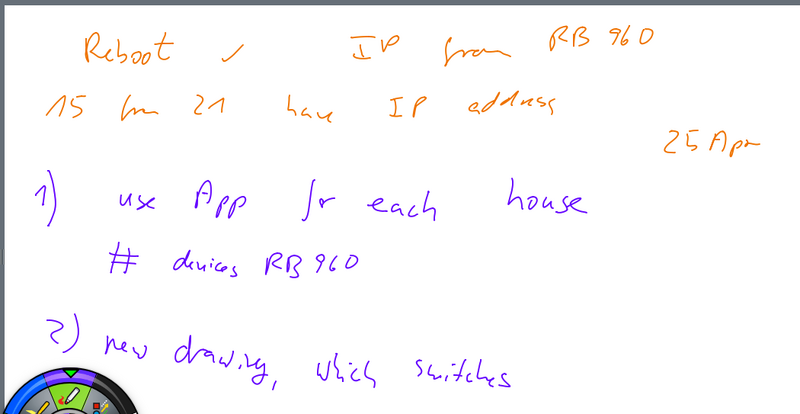 Reboot ✓ IP from RB 960
15 from 21 have IP address
25 Apr
1) use App for each house
# devices RB 960
2) new drawing, which switches